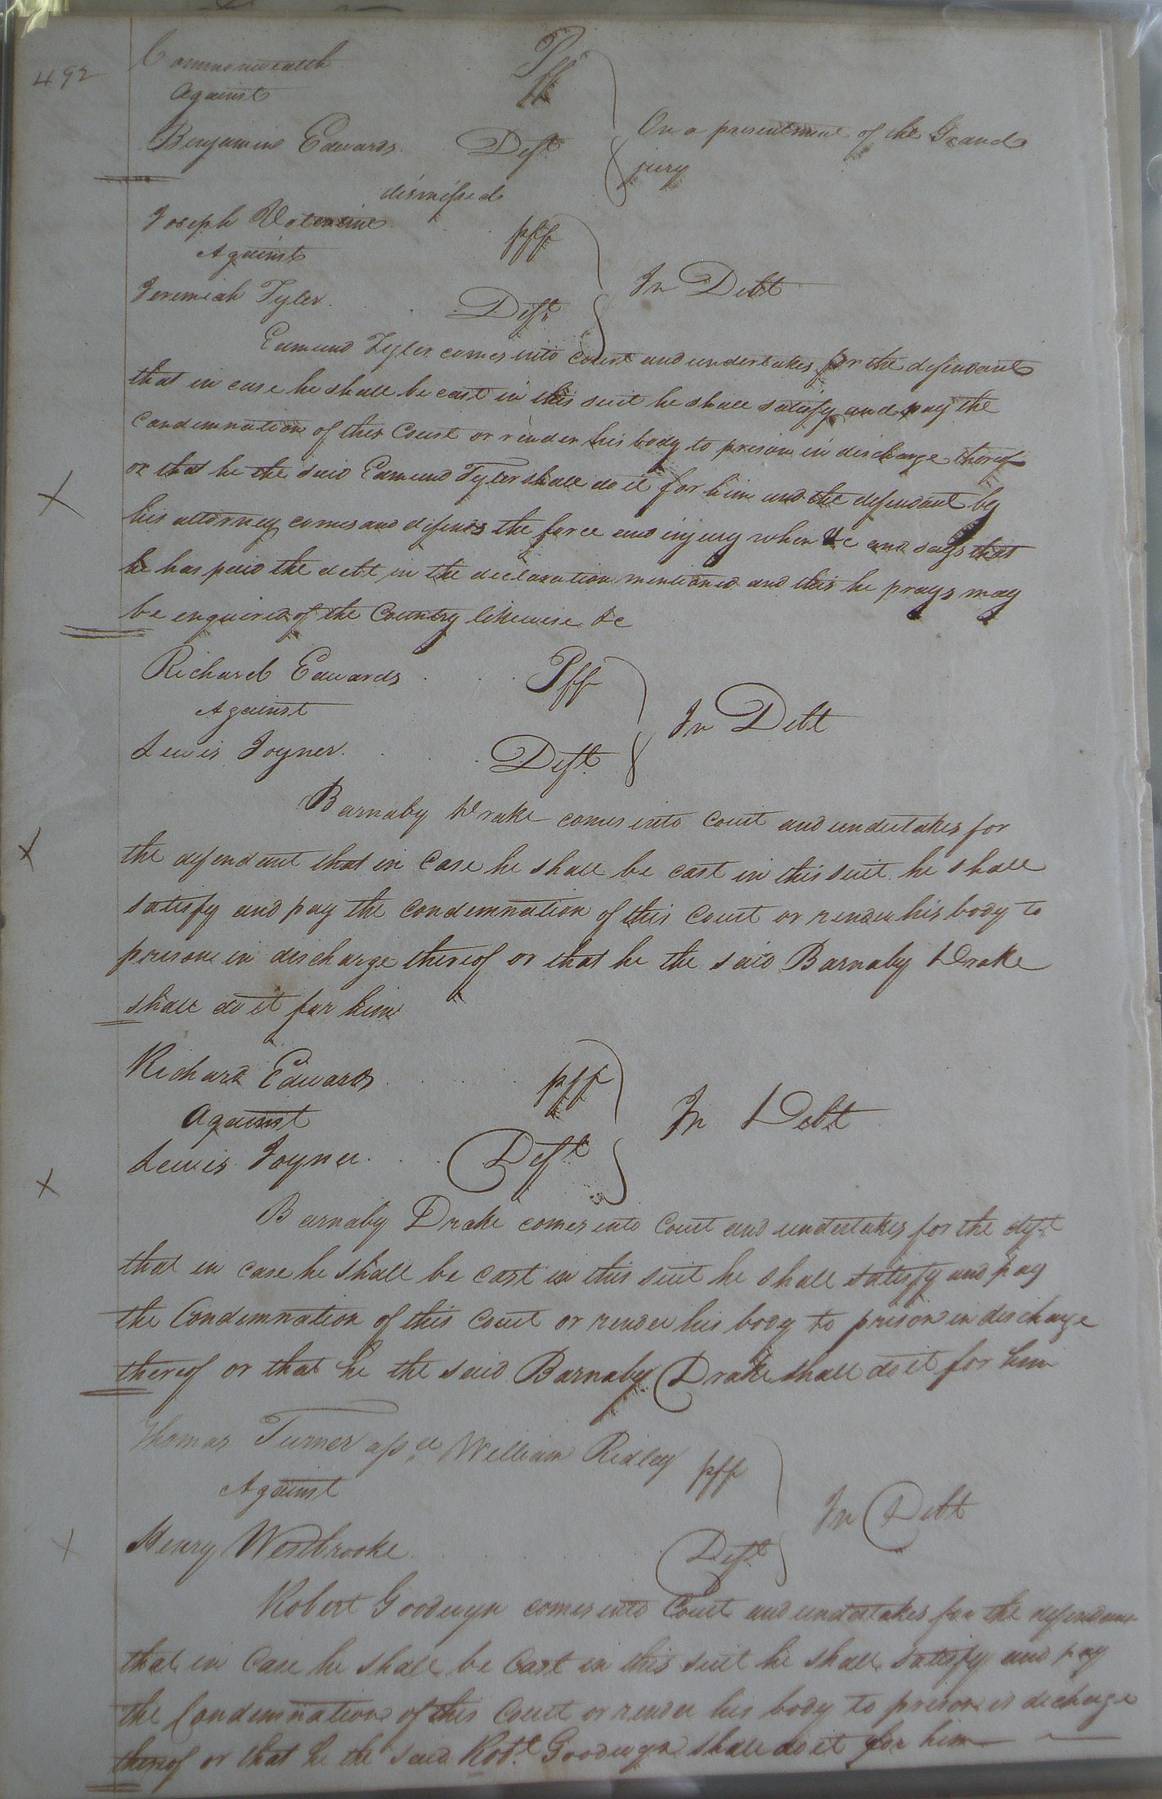 492
Commonwealth Pff
Against
Benjamine Edwards Deft
On a presentment of the Grand
jury
dismissed
Joseph Valentine pff
Against
Jeremiah Tyler Deft
In Debt
Edmund Tyler comes into court and undertakes for the defendant
that in case he shall be cast in this suit he shall satisfy and pay the
Condemnation of this Court or render his body to prison in discharge thereof
or that he the said Edmund Tyler shall do it for him and the defendant by
his attorney comes and defends the force and injury when &c and says that
he has paid the debt in the declaration mentioned and this he prays may
be enquired of the Country likewise &c
Richard Edwards Pff
Against
Lewis Joyner Deft
In Debt
Barnaby Drake comes into Court and undertakes for
the defendant that in Case he shall be cast in this suit he shall
satisfy and pay the condemnation of this Court or render his body to
prison in discharge thereof or that he the said Barnaby Drake
shall do it for him
Richard Edwards pff
Against
Lewis Joyner Deft
In Debt
Barnaby Drake comes into Court and undertakes for the deft
that in case he shall be cast in this suit he shall satisfy and pay
the Condemnation of this Court or render his body to prison in discharge
thereof or that he the said Barnaby Drake shall do it for him
Thomas Turner assee William Ridley pff
Against
Henry Westbrooke Deft
In Debt
Robert Goodwyn comes into Court and undertakes for the defendant
that in Case he shall be Cast in this suit he shall satisfy and pay
the Condemnation of this Court or render his body to prison in discharge
thereof or that he the said Robt. Goodwyn shall do it for him